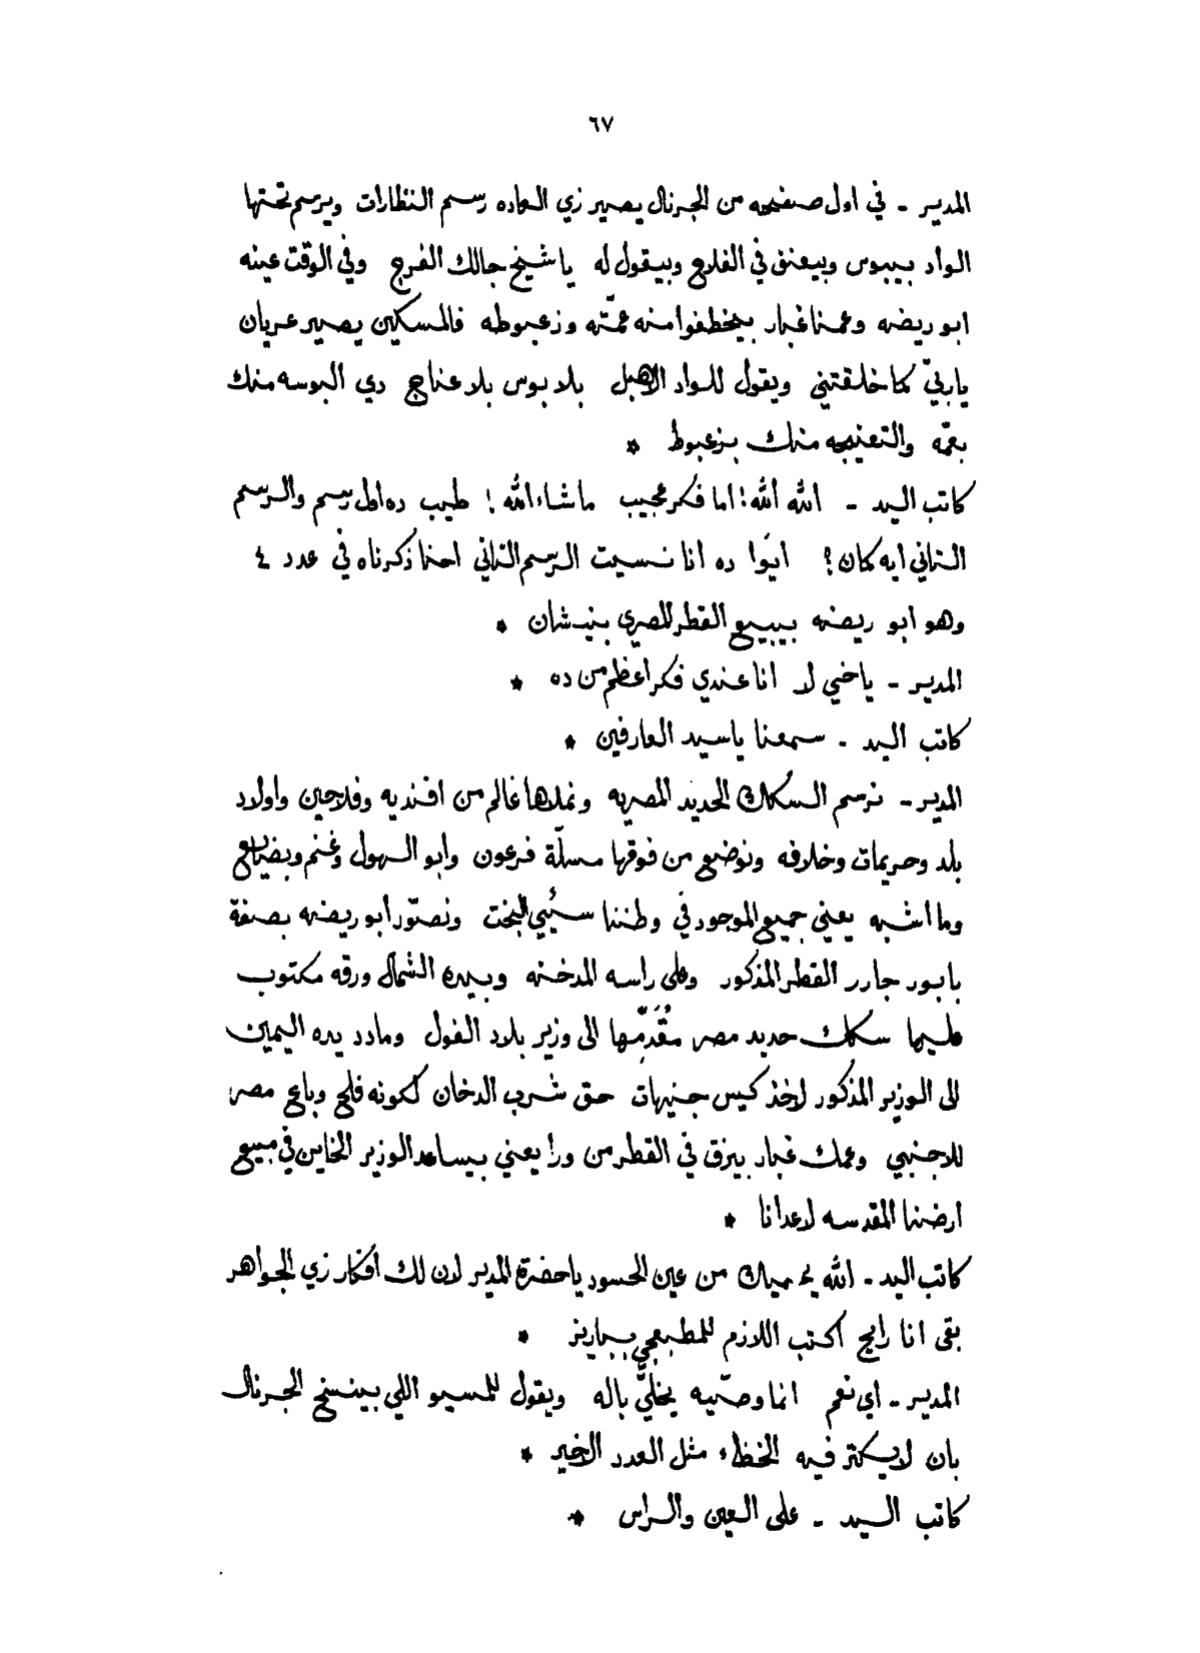 ٦٧
المدير - في اول صفحه من الجرنال يصير زي العاده رسم النظارات ويرسم تحتها
الواد بيبوس وبيعنق في الفلاح وبيقول له ياشيخ جالك الفرج وفي الوقت عينه
ابو ريضه وعمنا غبار بيخطفوا منه عمّته وزعبوطه فالمسكين يصير عريان
ياربيّ كما خلقتني ويقول للواد الاهبل بلا بوس بلا عناج دي البوسه منك
بعمّه والتعنيجه منك بزعبوط *
كاتب اليد - الله الله! اما فكر عجيب ماشاءالله! طيب ده اول رسم والرسم
التاني ايه كمان؟ ايوا ده انا نسيت الرسم التاني احنا ذكرناه في عدد ٤
وهو ابو ريضه بيبيع القطر المصري بنيشان *
المدير - ياخي لا انا عندي فكر اعظم من ده *
كاتب اليد - سمعنا ياسيد العارفين *
المدير - نرسم السكك الحديد المصريه ونملاها عالم من افنديه وفلاحين واولاد
بلد وحريمات وخلافه ونوضع من فوقها مسلّة فرعون وابو الهول وغنم وبضايع
وما اشبه يعني جميع الموجود في وطننا سيّئي البخت ونصوّر ابو ريضه بصفة
بابور جارر القطر المذكور وعلى راسه المدخنه وبيده الشمال ورقه مكتوب
عليها سكك حديد مصر مُقَدِّمها الى وزير بلاد الفول ومادد يده اليمين
الى الوزير المذكور لاخذ كيس جنيهات حق شرب الدخان لكونه فلح وباع مصر
للاجنبي وعمك غبار بيزق في القطر من ورا يعني بيساعد الوزير الخاين في مبيع
ارضنا المقدسه لاعدانا *
كاتب اليد - الله يحميك من عين الحسود ياحضرة المدير لان لك افكار زي الجواهر
بقى انا رايح اكتب اللازم للمطبعجي بباريز *
المدير - اي نعم انما وصّيه يخليّ باله ويقول للمسيو اللي بينسخ الجرنال
بان لا يكتر فيه الخطاء مثل العدد الاخير *
كاتب اليد - على العين والراس *